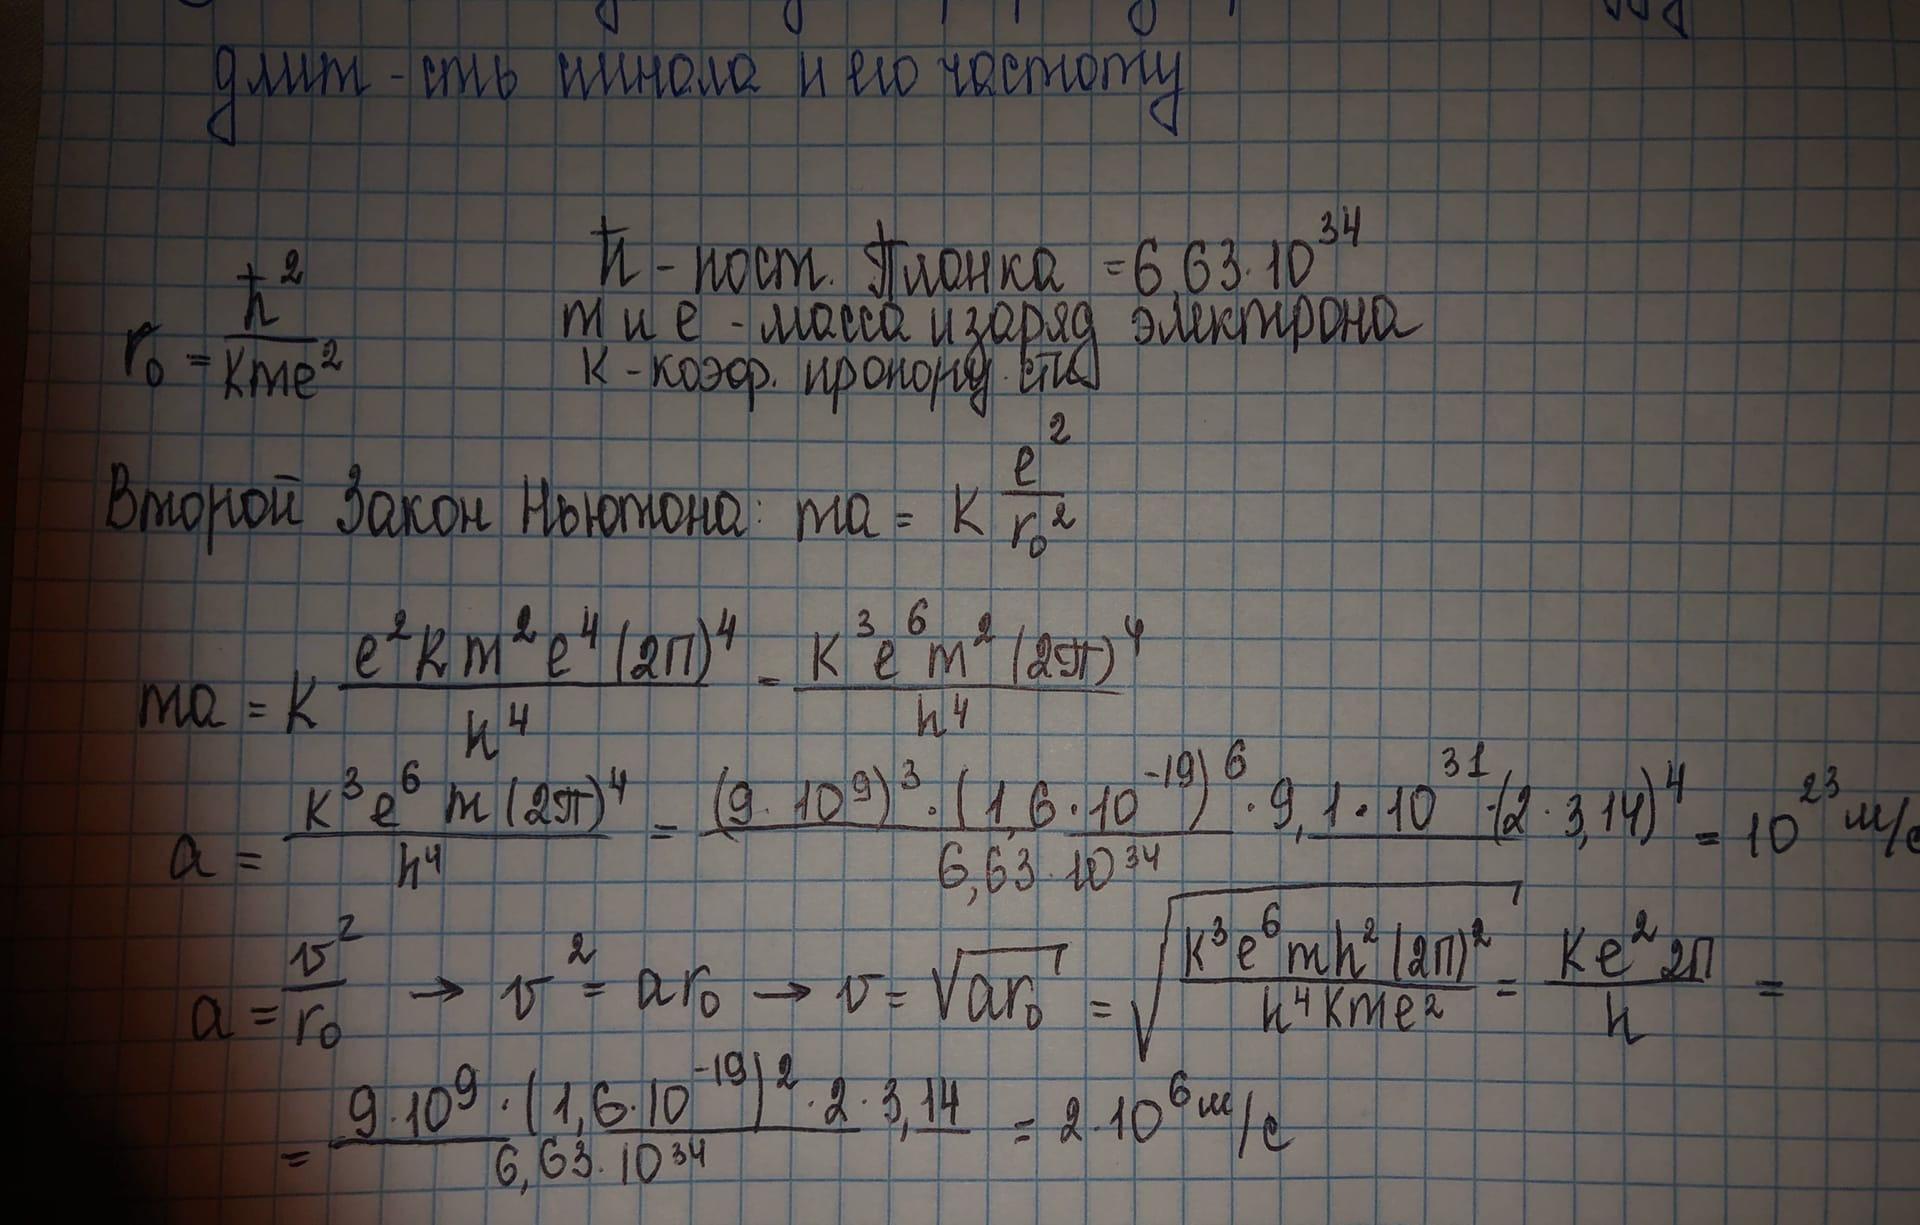 длит-сть сигнала и его частоту
ħ - пост. Планка = 6,63·10³⁴
r₀ = ħ²/kme²
m и e - масса и заряд электрона
К - коэф. пропорц. сти
Второй Закон Ньютона: ma = k e²/r₀²
ma = k e²km²e⁴(2π)⁴/h⁴ = k³e⁶m²(2π)⁴/h⁴
a = k³e⁶m(2π)⁴/h⁴ = (9·10⁹)³·(1,6·10⁻¹⁹)⁶·9,1·10³¹·(2·3,14)⁴/6,63·10³⁴ = 10²³ м/с
a = v²/r₀ → v² = ar₀ → v = √ar₀ = √k³e⁶mh²(2π)²/h⁴kme² = ke²2π/h =
= 9·10⁹·(1,6·10⁻¹⁹)²·2·3,14/6,63·10³⁴ = 2·10⁶ м/с